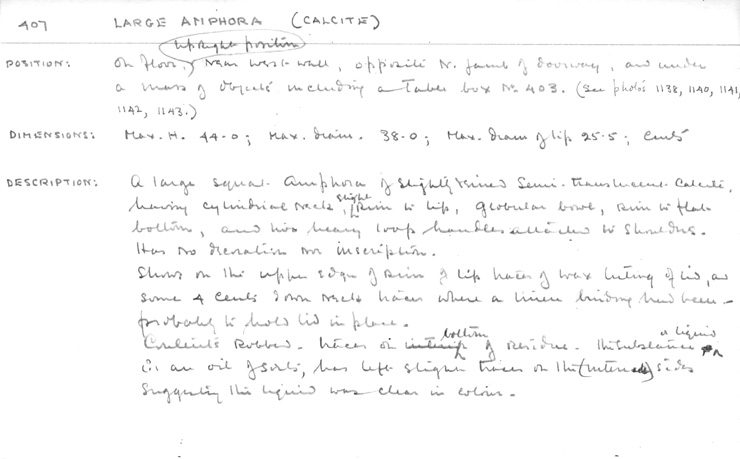 407 LARGE AMPHORA (CALCITE)
upright position
POSITION: On floor, near west wall, opposite N. jamb of doorway, and under
a mass of objects including a Table box No 403. (See photos 1138, 1140, 1141,
1142, 1143.)
DIMENSIONS: Max. H. 44.0; Max. diam. 38.0; Max. diam of lip 25.5; Cents
DESCRIPTION: A large squat amphora of slightly veined semi-translucent calcite,
having cylindrical neck, slight rim to lip, globular bowl, rim to flat
bottom, and two heavy loop handles attached to shoulders.
Has no decoration nor inscription.
Shows on the upper edge of rim of lip traces of wax luting of lid, and
some 4 cents down neck traces where a linen binding had been -
probably to hold lid in place.
Contents Robbed. Traces on bottom of residue. The substance a liquid
an oil of sorts, has left slight traces on the (internal) sides
suggesting the liquid was clear in colour.